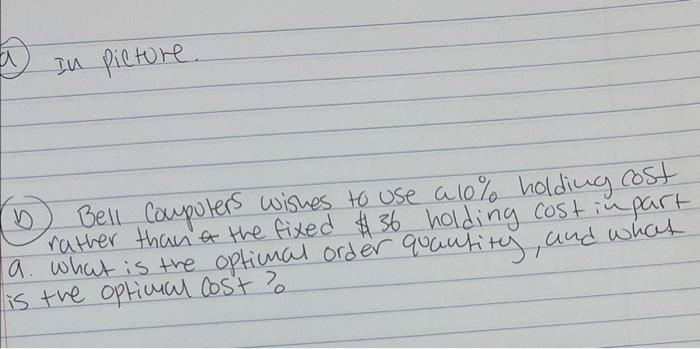 a) In picture.
b) Bell Computers wishes to use a 10% holding cost
rather than the fixed $36 holding cost in part
a. what is the optimal order quantity, and what
is the optimal cost?